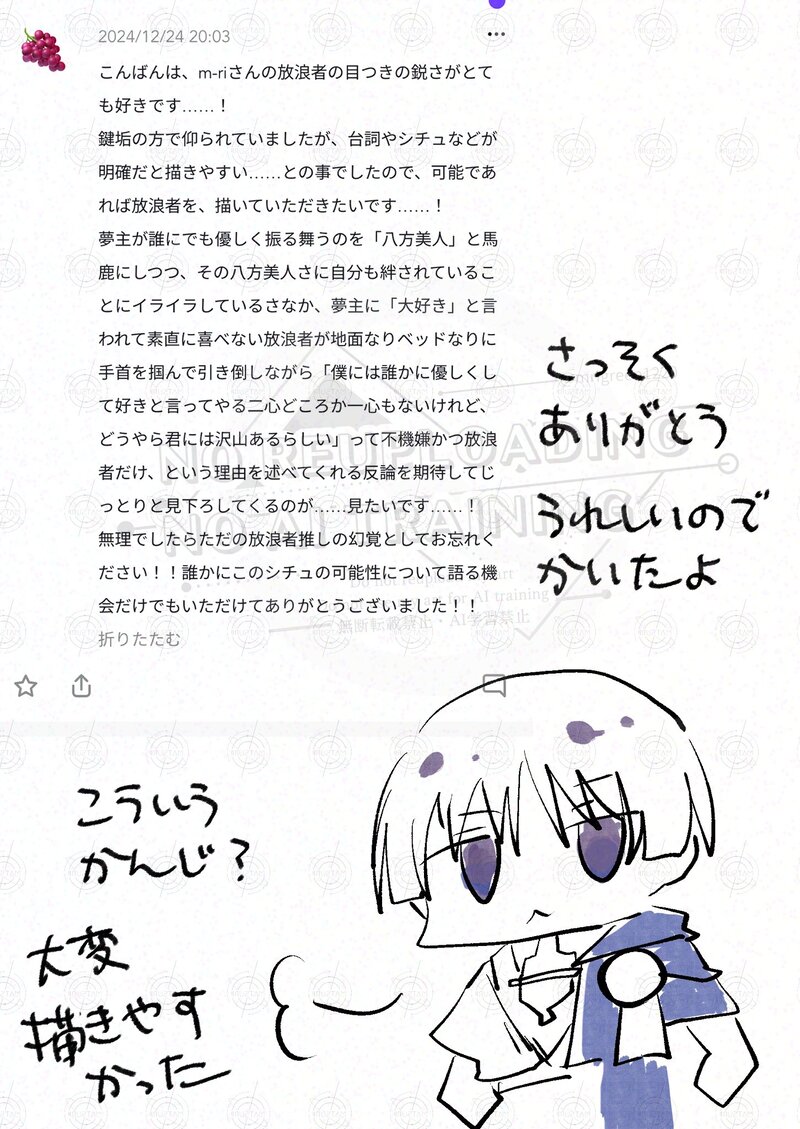 2024/12/24 20:03
こんばんは、m-riさんの放浪者の目つきの鋭さがとて
も好きです……！
鍵垢の方で仰られていましたが、台詞やシチュなどが
明確だと描きやすい……との事でしたので、可能であ
れば放浪者を、描いていただきたいです……！
夢主が誰にでも優しく振る舞うのを「八方美人」と馬
鹿にしつつ、その八方美人さに自分も絆されているこ
とにイライラしているさなか、夢主に「大好き」と言
われて素直に喜べない放浪者が地面なりベッドなりに
手首を掴んで引き倒しながら「僕には誰かに優しくし
て好きと言ってやる二心どころか一心もないけれど、
どうやら君には沢山あるらしい」って不機嫌かつ放浪
者だけ、という理由を述べてくれる反論を期待してじ
っとりと見下ろしてくるのが……見たいです……！
無理でしたらただの放浪者推しの幻覚としてお忘れく
ださい！！誰かにこのシチュの可能性について語る機
会だけでもいただけてありがとうございました！！
折りたたむ
さっそく
ありがとう
うれしいので
かいたよ
こういう
かんじ？
大変
描きやす
かった
NO REUPLOADING
NO AI TRAINING
無断転載禁止・AI学習禁止